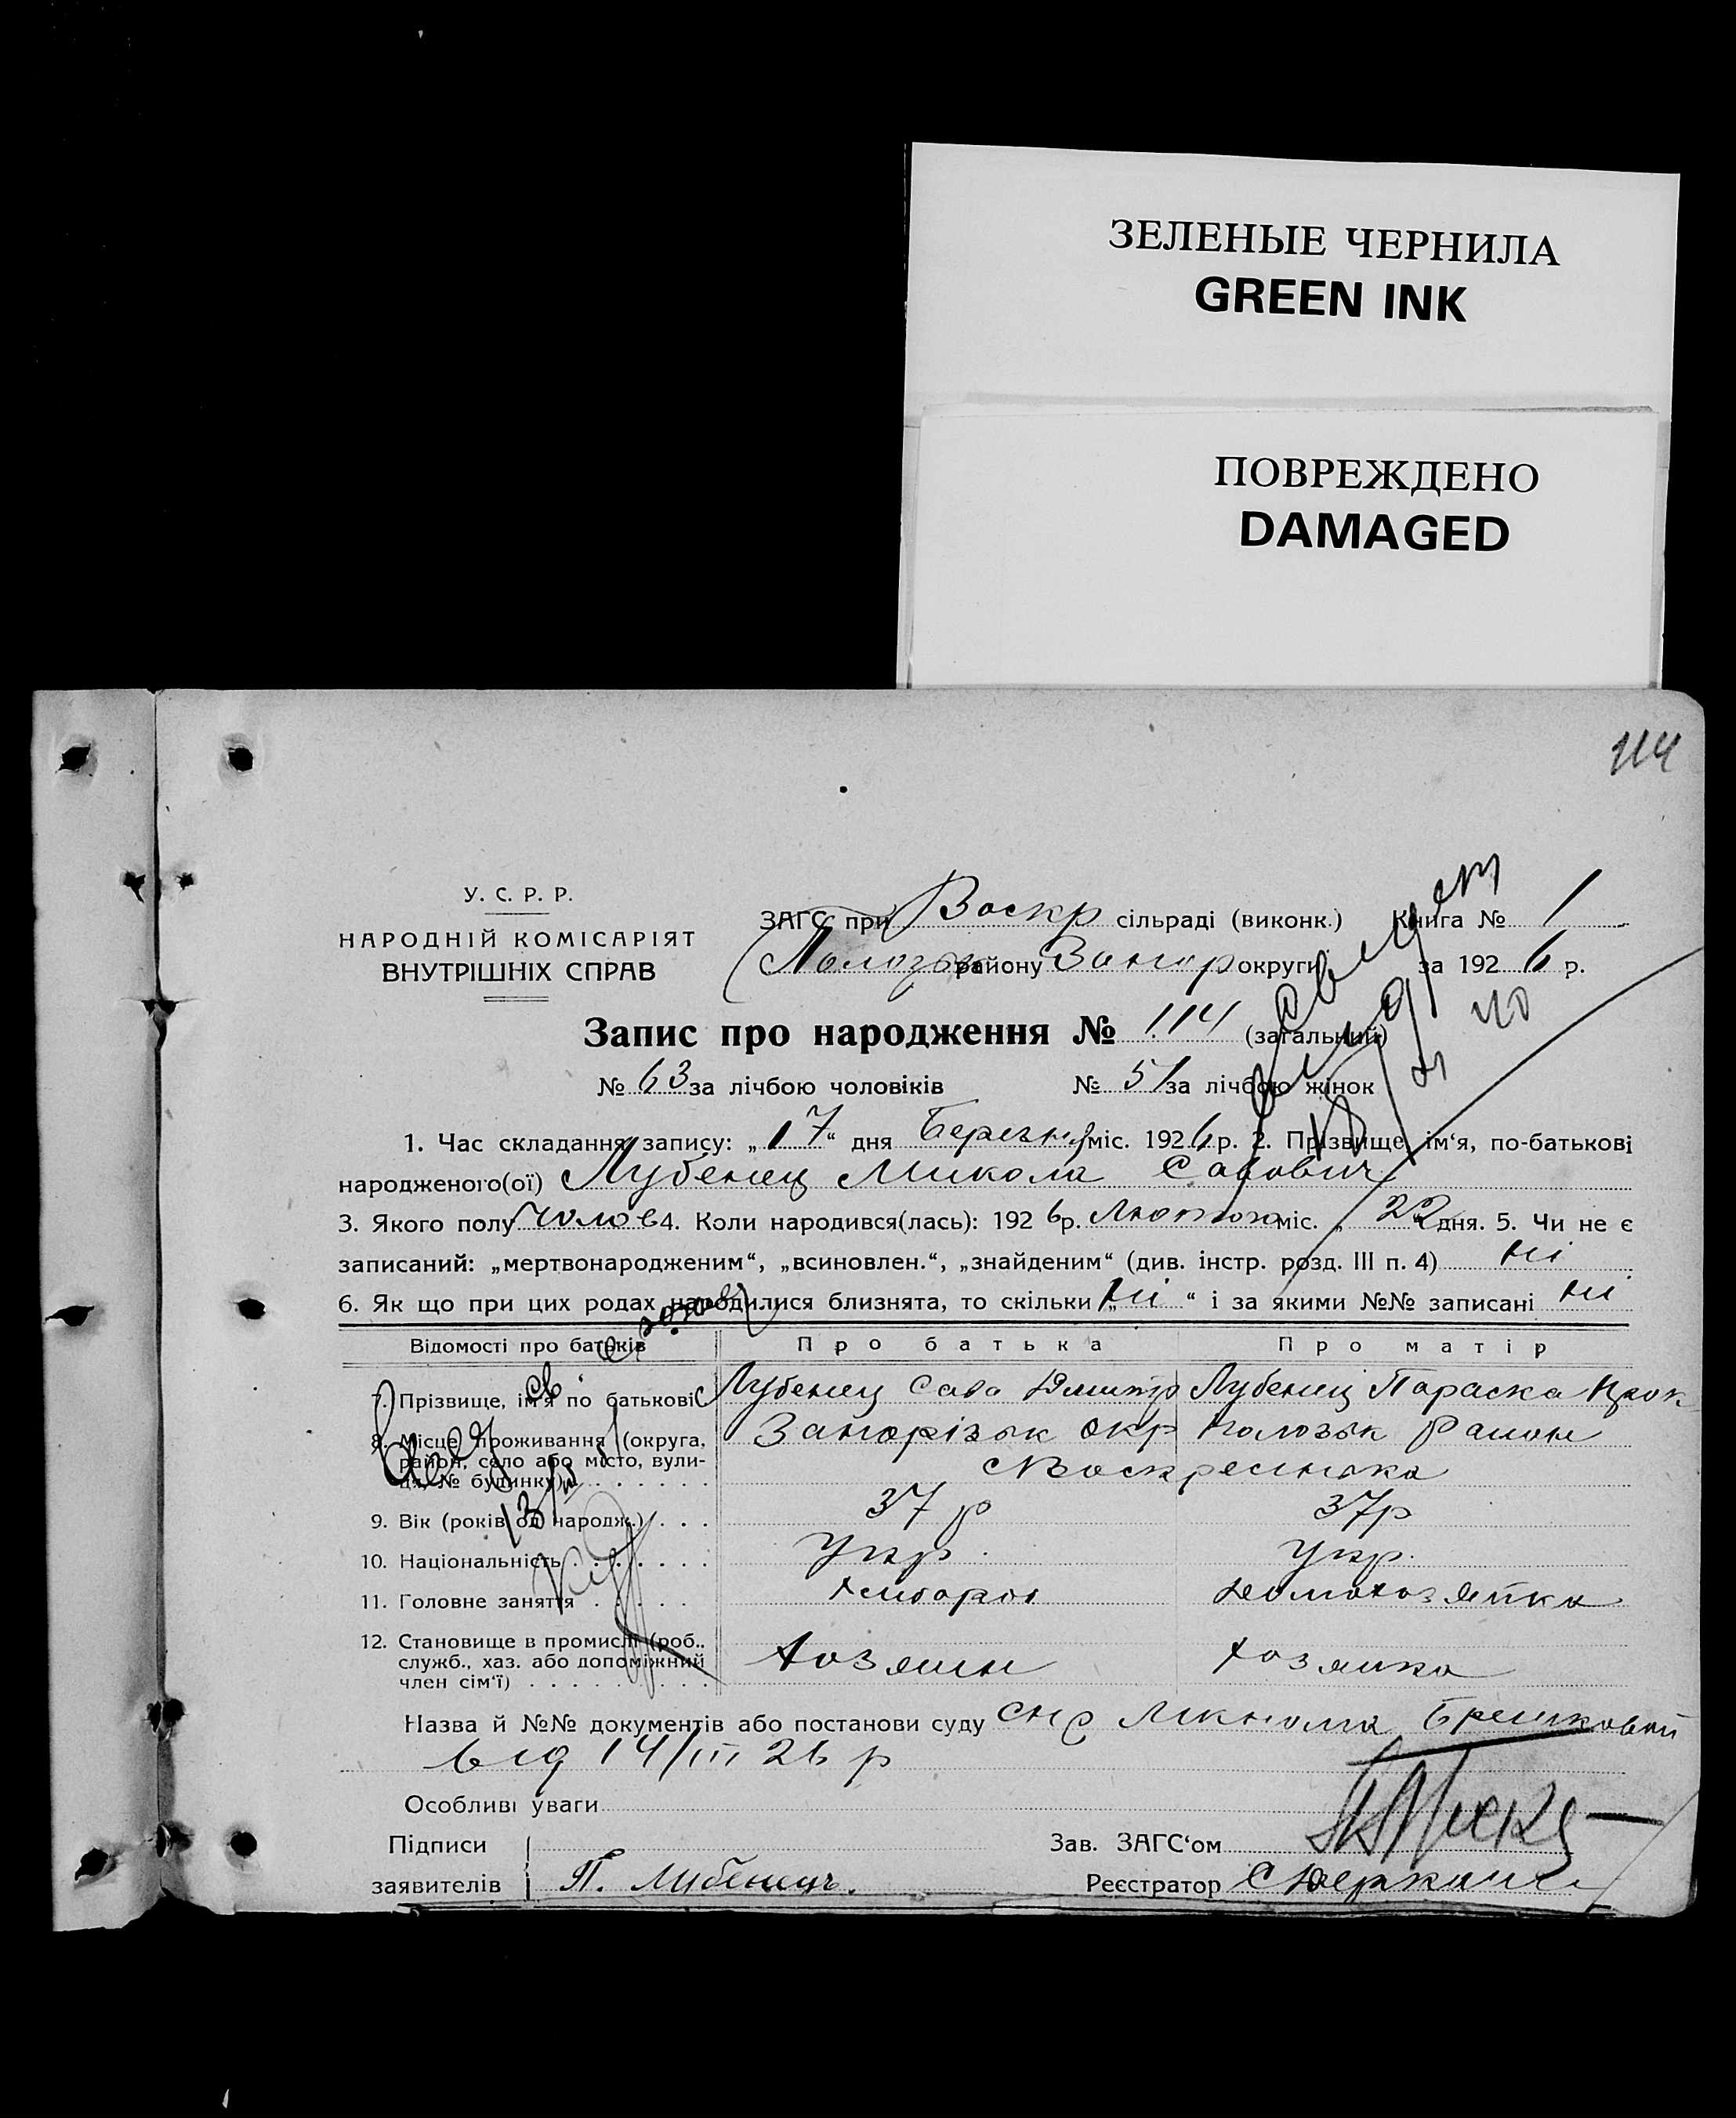 ЗЕЛЕНЫЕ ЧЕРНИЛА
GREEN INK
ПОВРЕЖДЕНО
DAMAGED
114
У. С. Р. Р.
НАРОДНІЙ КОМІСАРІЯТ
ВНУТРІШНІХ СПРАВ
ЗАГС при Воскр сільраді (виконк.) Книга № 1
района Запор округи за 1926 р.
Запис про народження № 114 (загальний)
№ 63 за лічбою чоловіків № 51 за лічбою жінок
1. Час складання запису: „17“ дня Березня міс. 1926 р. 2. Прізвище, ім‘я, по-батькові
народженого(ої) Лубенец Микола Савович
3. Якого полу Чолов 4. Коли народився(лась): 1926 р. Лютого міс. „22“ дня. 5. Чи не є
записаний: „мертвонародженим“, „всиновлен.“, „знайденим“ (див. інстр. розд. III п. 4) ні
6. Як що при цих родах народилися близнята, то скільки „ні“ і за якими №№ записані ні
Відомості про батьків Про батька Про матір
7. Прізвище, ім‘я по батькові Лубенец Сава Дмитр Лубенец Параска Прок
8. Місце проживання (округа, район, село або місто, вулиця, № будинку) Запорізьк окр Пологзьк Район
Воскресенька
9. Вік (років од народж.) 37 р 37 р
10. Національність Укр. Укр.
11. Головне заняття Хлібороб Домохозяйка
12. Становище в промислі (роб., служб., хаз. або допоміжний член сім‘ї) Хозяин Хозяйка
Назва й №№ документів або постанови суду
від 14/III 26 р
Особливі уваги
Підписи Зав. ЗАГС‘ом
заявителів П. Лубенець. Реєстратор